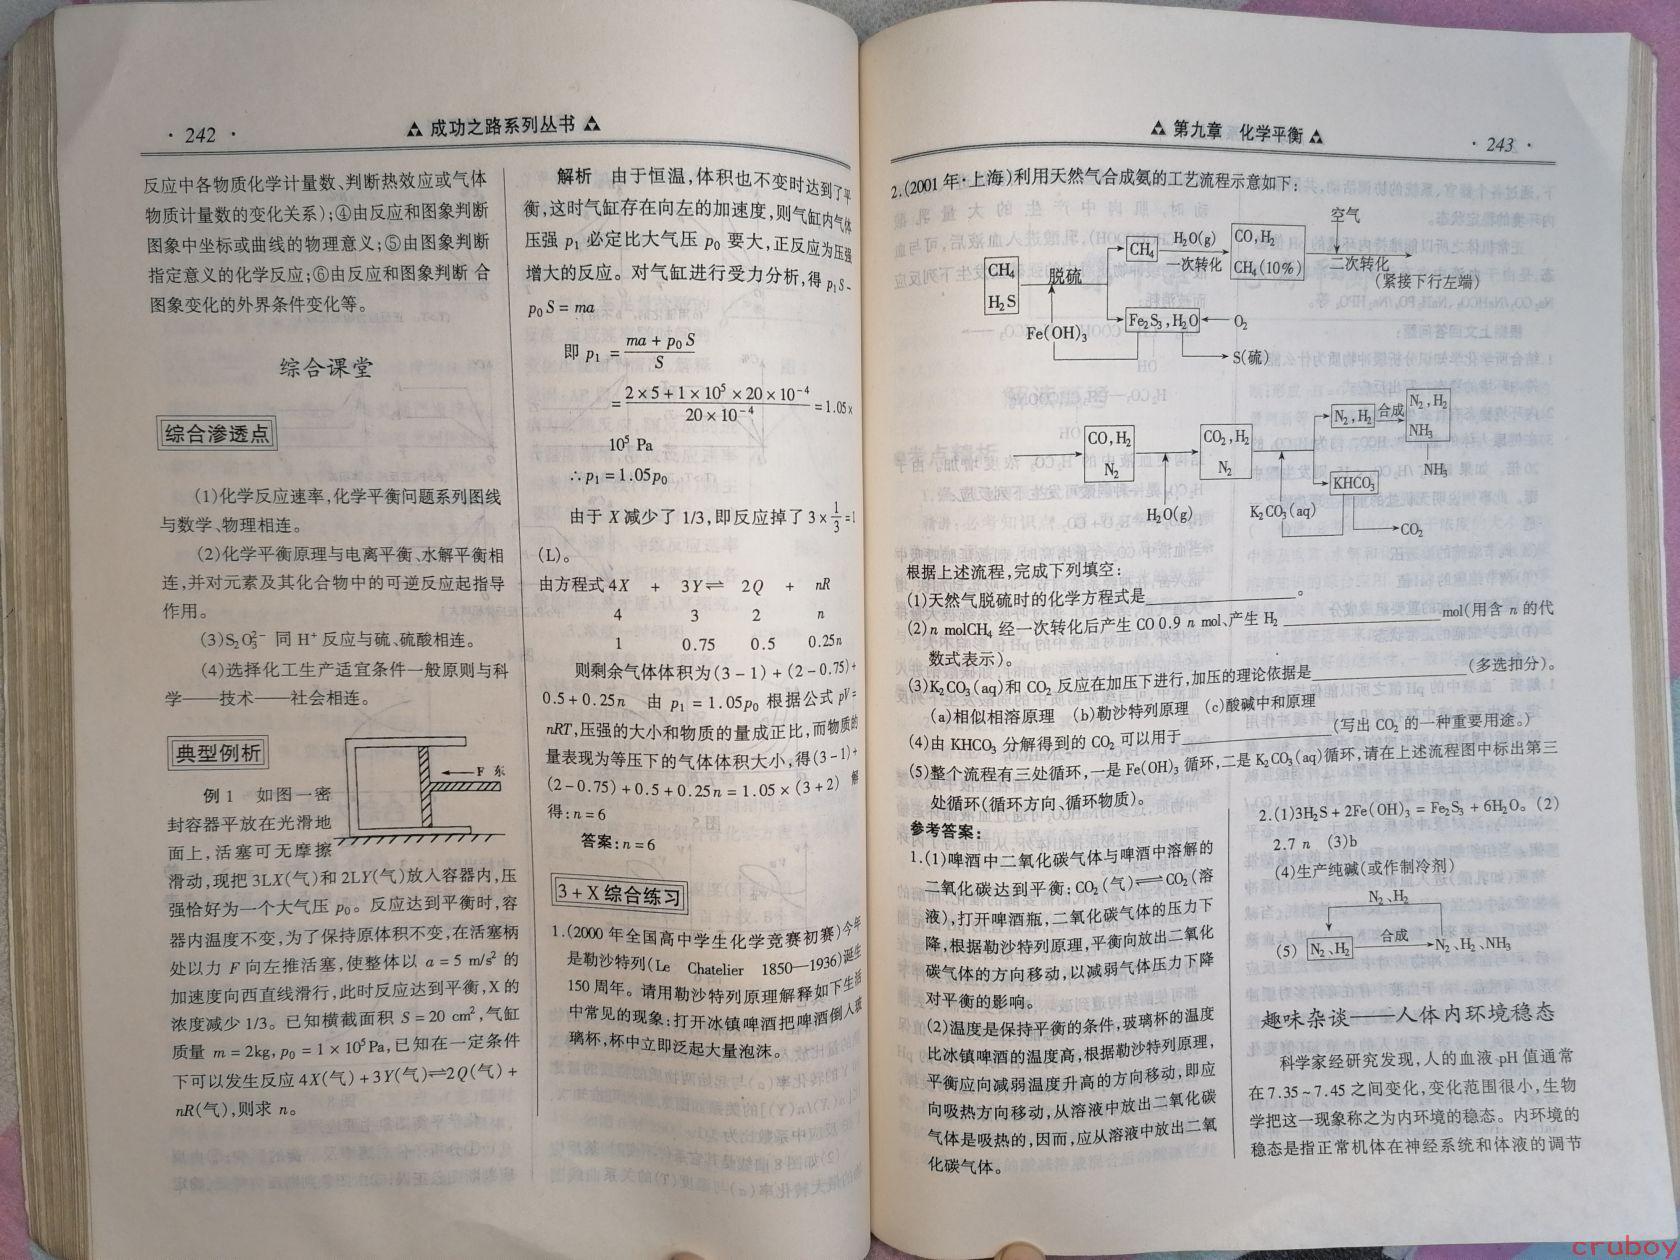 · 242 ·
成功之路系列丛书
反应中各物质化学计量数、判断热效应或气体
物质计量数的变化关系);④由反应和图象判断
图象中坐标或曲线的物理意义;⑤由图象判断
指定意义的化学反应;⑥由反应和图象判断 合
图象变化的外界条件变化等。
综合课堂
综合渗透点
(1)化学反应速率,化学平衡问题系列图线
与数学、物理相连。
(2)化学平衡原理与电离平衡、水解平衡相
连,并对元素及其化合物中的可逆反应起指导
作用。
(3)S₂O₃²⁻ 同 H⁺ 反应与硫、硫酸相连。
(4)选择化工生产适宜条件一般原则与科
学——技术——社会相连。
典型例析
F 东
例 1 如图一密
封容器平放在光滑地
面上,活塞可无摩擦
滑动,现把 3LX(气)和 2LY(气)放入容器内,压
强恰好为一个大气压 p₀。反应达到平衡时,容
器内温度不变,为了保持原体积不变,在活塞柄
处以力 F 向左推活塞,使整体以 a = 5 m/s² 的
加速度向西直线滑行,此时反应达到平衡,X 的
浓度减少 1/3。已知横截面积 S = 20 cm²,气缸
质量 m = 2kg, p₀ = 1 × 10⁵Pa,已知在一定条件
下可以发生反应 4X(气) + 3Y(气)⇌2Q(气) +
nR(气),则求 n。
解析 由于恒温,体积也不变时达到了平
衡,这时气缸存在向左的加速度,则气缸内气体
压强 p₁ 必定比大气压 p₀ 要大,正反应为压强
增大的反应。对气缸进行受力分析,得 p₁S -
p₀S = ma
即 p₁ = (ma + p₀S)/S
= (2 × 5 + 1 × 10⁵ × 20 × 10⁻⁴)/(20 × 10⁻⁴) = 1.05×
10⁵ Pa
∴ p₁ = 1.05p₀
由于 X 减少了 1/3,即反应掉了 3 × 1/3 = 1
(L)。
由方程式 4X + 3Y⇌ 2Q + nR
4 3 2 n
1 0.75 0.5 0.25n
则剩余气体体积为(3 - 1) + (2 - 0.75) +
0.5 + 0.25n 由 p₁ = 1.05p₀ 根据公式 pV =
nRT,压强的大小和物质的量成正比,而物质的
量表现为等压下的气体体积大小,得(3 - 1) +
(2 - 0.75) + 0.5 + 0.25n = 1.05 × (3 + 2) 解
得: n = 6
答案: n = 6
3 + X 综合练习
1.(2000 年全国高中学生化学竞赛初赛)今年
是勒沙特列(Le Chatelier 1850—1936)诞生
150 周年。请用勒沙特列原理解释如下生活
中常见的现象:打开冰镇啤酒把啤酒倒入玻
璃杯,杯中立即泛起大量泡沫。
第九章 化学平衡
· 243 ·
2.(2001 年·上海)利用天然气合成氨的工艺流程示意如下:
空气
CH₄ H₂O(g) CO,H₂
一次转化 CH₄(10%) 二次转化
(紧接下行左端)
CH₄
H₂S
脱硫
Fe(OH)₃
Fe₂S₃,H₂O O₂
S(硫)
CO,H₂
N₂
H₂O(g)
CO₂,H₂
N₂
N₂,H₂ 合成 N₂,H₂
NH₃
NH₃
KHCO₃
K₂CO₃(aq)
CO₂
根据上述流程,完成下列填空:
(1)天然气脱硫时的化学方程式是 。
(2)n molCH₄ 经一次转化后产生 CO 0.9 n mol、产生 H₂ mol(用含 n 的代
数式表示)。
(3)K₂CO₃(aq)和 CO₂ 反应在加压下进行,加压的理论依据是 (多选扣分)。
(a)相似相溶原理 (b)勒沙特列原理 (c)酸碱中和原理
(4)由 KHCO₃ 分解得到的 CO₂ 可以用于 (写出 CO₂ 的一种重要用途。)
(5)整个流程有三处循环,一是 Fe(OH)₃ 循环,二是 K₂CO₃(aq)循环,请在上述流程图中标出第三
处循环(循环方向、循环物质)。
参考答案:
1.(1)啤酒中二氧化碳气体与啤酒中溶解的
二氧化碳达到平衡: CO₂(气)⇌CO₂(溶
液),打开啤酒瓶,二氧化碳气体的压力下
降,根据勒沙特列原理,平衡向放出二氧化
碳气体的方向移动,以减弱气体压力下降
对平衡的影响。
(2)温度是保持平衡的条件,玻璃杯的温度
比冰镇啤酒的温度高,根据勒沙特列原理,
平衡应向减弱温度升高的方向移动,即应
向吸热方向移动,从溶液中放出二氧化碳
气体是吸热的,因而,应从溶液中放出二氧
化碳气体。
2.(1)3H₂S + 2Fe(OH)₃ = Fe₂S₃ + 6H₂O。(2)
2.7 n (3)b
(4)生产纯碱(或作制冷剂)
N₂、H₂
(5) N₂、H₂ 合成 N₂、H₂、NH₃
趣味杂谈——人体内环境稳态
科学家经研究发现,人的血液 pH 值通常
在 7.35 ~ 7.45 之间变化,变化范围很小,生物
学把这一现象称之为内环境的稳态。内环境的
稳态是指正常机体在神经系统和体液的调节
cruboy